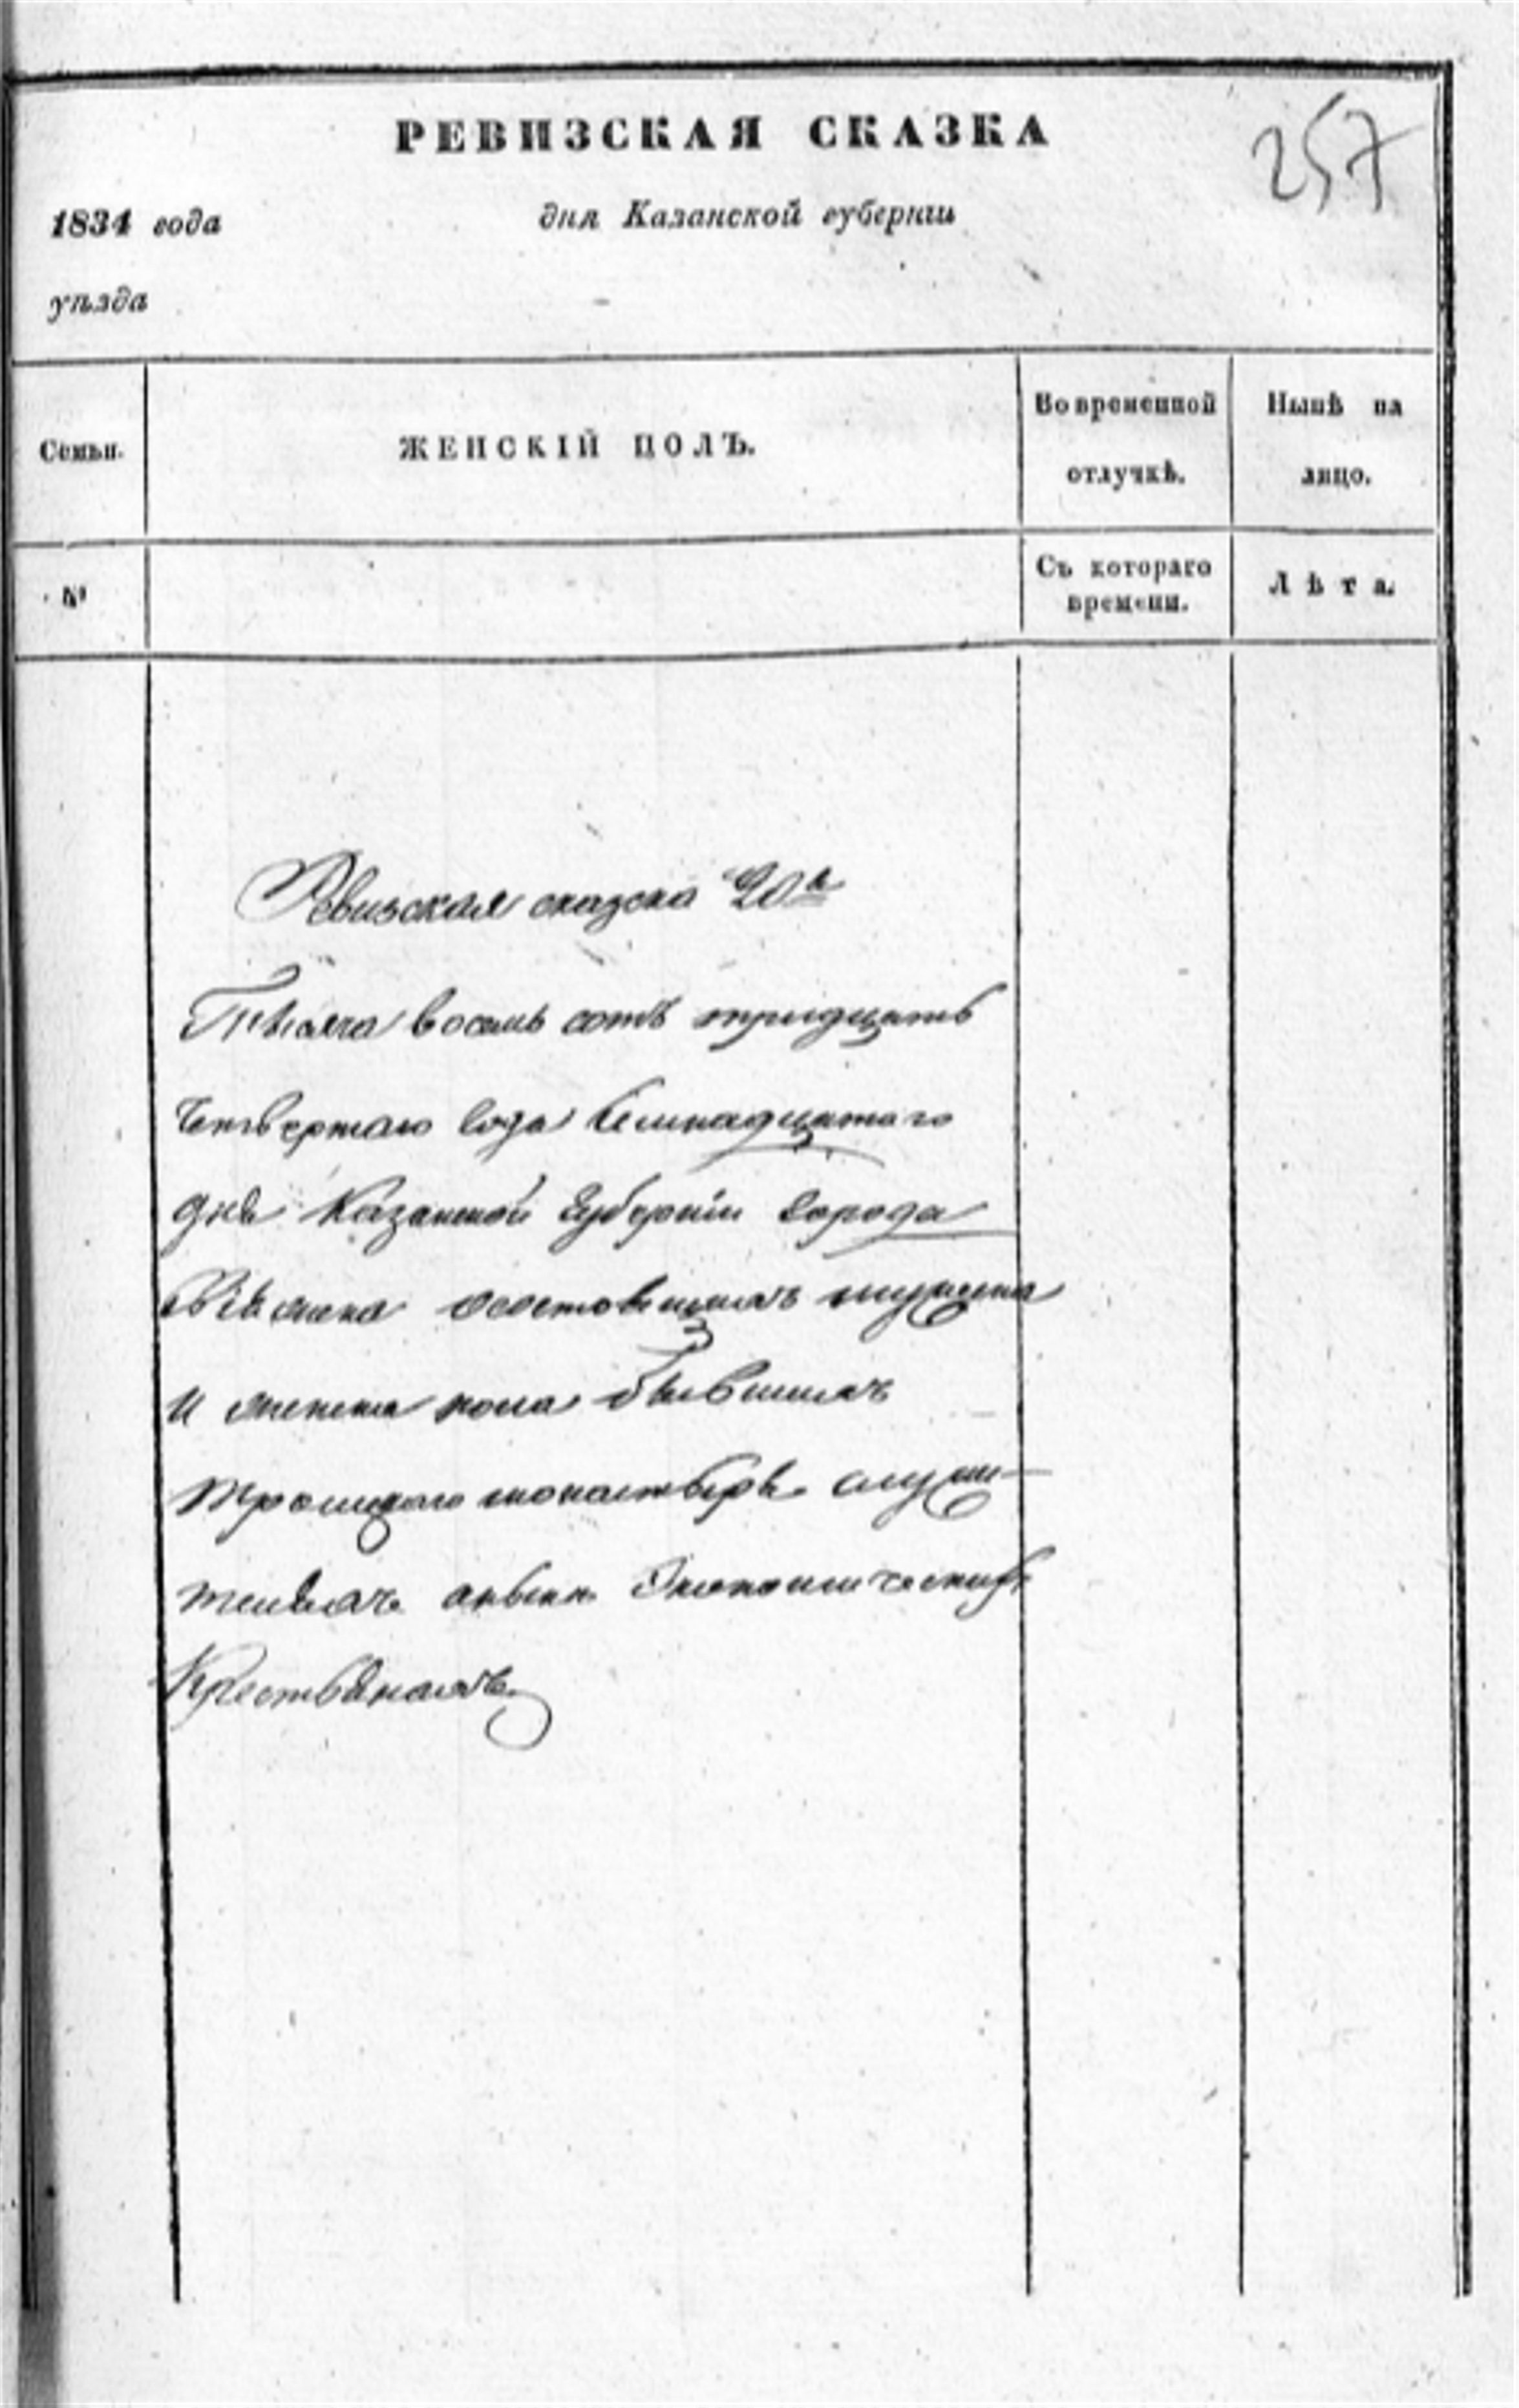 РЕВИЗСКАЯ СКАЗКА
257
1834 года дня Казанской губерніи
уѣзда
Семьи.
ЖЕНСКІЙ ПОЛЪ.
Во временной отлучкѣ.
Нынѣ на лицо.
№
Съ котораго времени.
Лѣта.
Ревизская сказска 20я
Тысяча восемь сотъ тридцать
четвертаго года семнадцатаго
дня Казанской Губерніи города
о состоящихъ мужеска
и женска пола бывшихъ
Троицкаго монастыря служи-
теляхъ Экономическихъ
Крестьянахъ